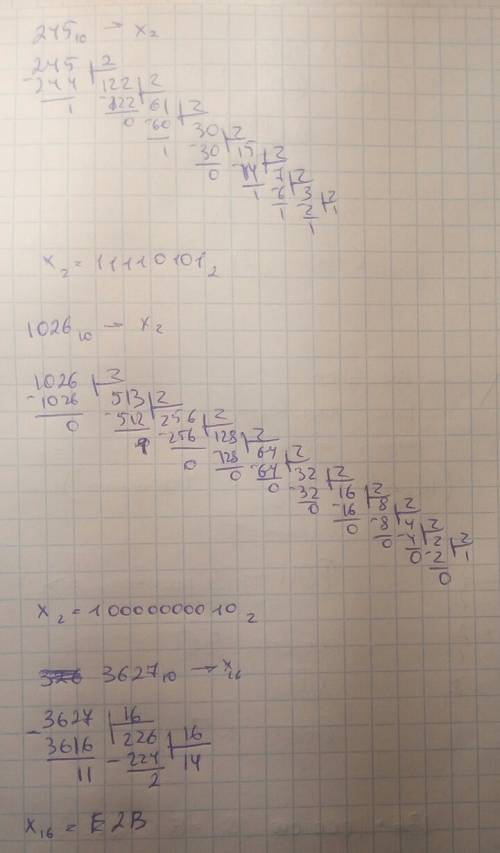 245₁₀ → x₂
245 | 2
-244 122 | 2
1 -122 61 | 2
0 -60 30 | 2
1 -30 15 | 2
0 -14 7 | 2
1 -6 3 | 2
1 -2 1
1
x₂ = 11110101₂
1026₁₀ → x₂
1026 | 2
-1026 513 | 2
0 -512 256 | 2
1 -256 128 | 2
0 128 64 | 2
0 -64 32 | 2
0 -32 16 | 2
0 -16 8 | 2
0 -8 4 | 2
0 -4 2 | 2
0 -2 1
0
x₂ = 10000000010₂
3627₁₀ → x₁₆
-3627 | 16
3616 226 | 16
11 -224 14
2
x₁₆ = E2B